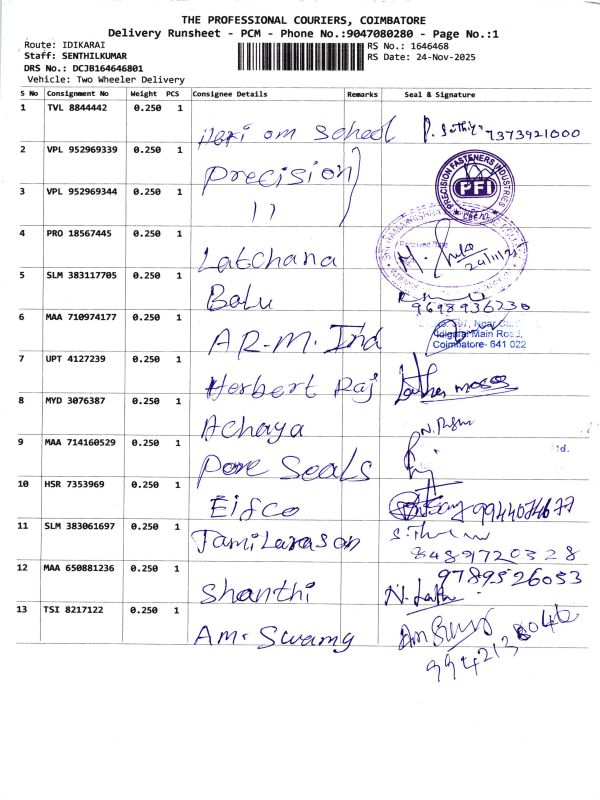 THE PROFESSIONAL COURIERS, COIMBATORE
Delivery Runsheet - PCM - Phone No.:9047080280 - Page No.:1
Route: IDIKARAI
RS No.: 1646468
Staff: SENTHILKUMAR
RS Date: 24-Nov-2025
DRS No.: DCJB164646801
Vehicle: Two Wheeler Delivery
S No Consignment No Weight PCS Consignee Details Remarks Seal & Signature
1 TVL 8844442 0.250 1 Hari om School 7373921000
2 VPL 952969339 0.250 1 Precision
PRECISION FASTENERS INDUSTRIES
PFI
3 VPL 952969344 0.250 1 11
4 PRO 18567445 0.250 1 Latchana
5 SLM 383117705 0.250 1 Balu 9698936236
6 MAA 710974177 0.250 1 A R.M. Ind
Idigarai Main Road,
Coimbatore- 641 022
7 UPT 4127239 0.250 1 Herbert Raj
8 MYD 3076387 0.250 1 Achaya
9 MAA 714160529 0.250 1 Pore Seals
10 HSR 7353969 0.250 1 Eifco 9944074677
11 SLM 383061697 0.250 1 Tamilarason
12 MAA 650881236 0.250 1 Shanthi 9789526053
13 TSI 8217122 0.250 1 Am. Swamy